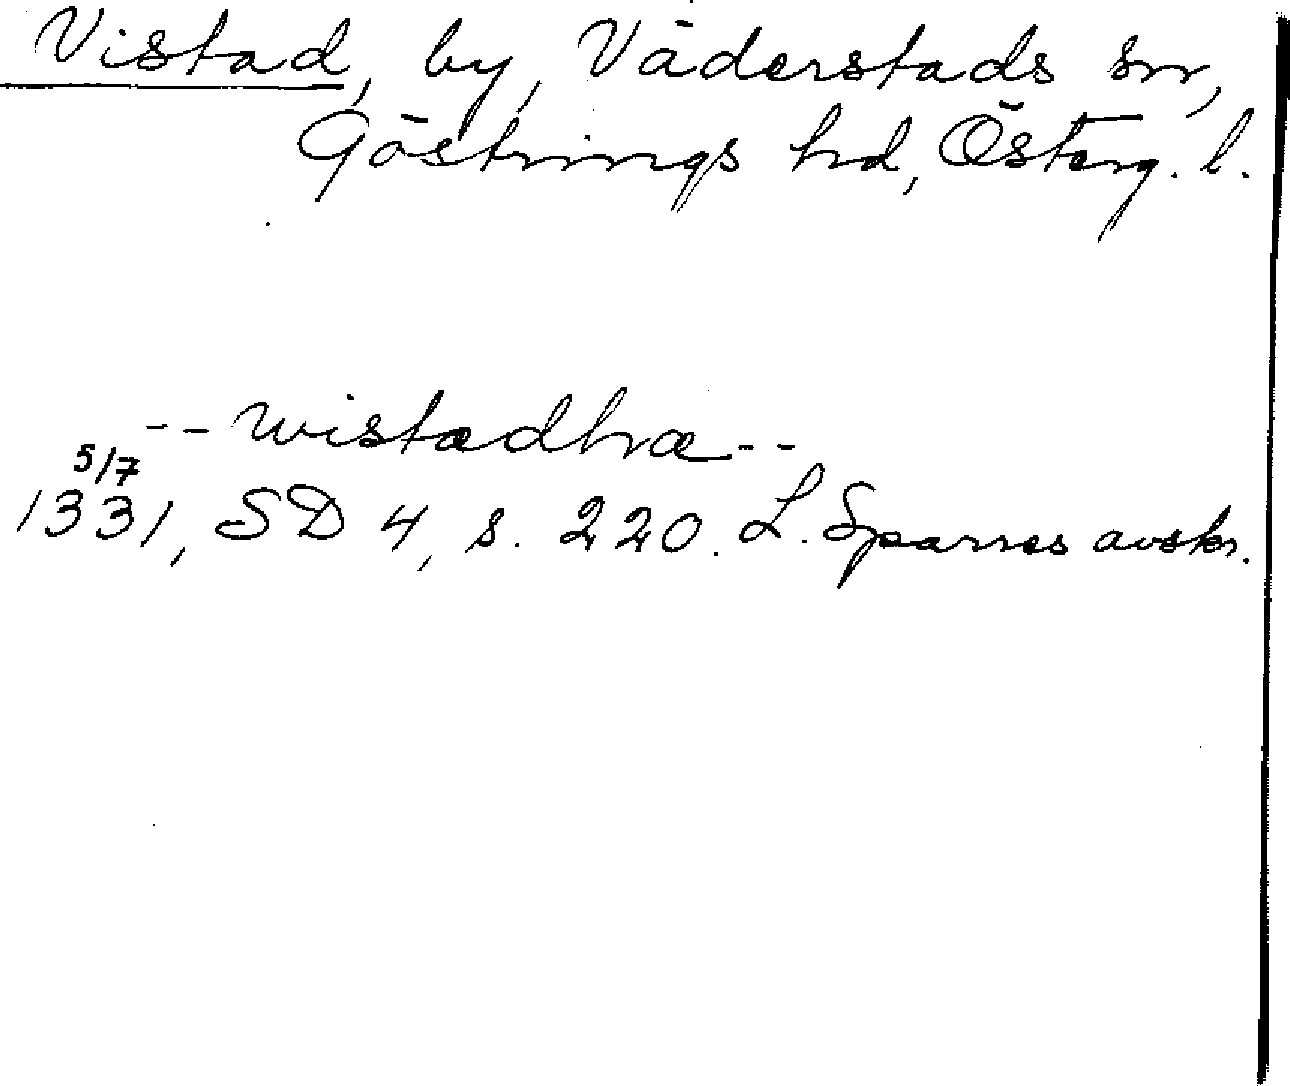 Vistad, by, Väderstads sn,
Göstrings hd, Österg. l.
-- wistadhæ --
5/7
1331, SD 4, s. 220. L. Sparres avskr.